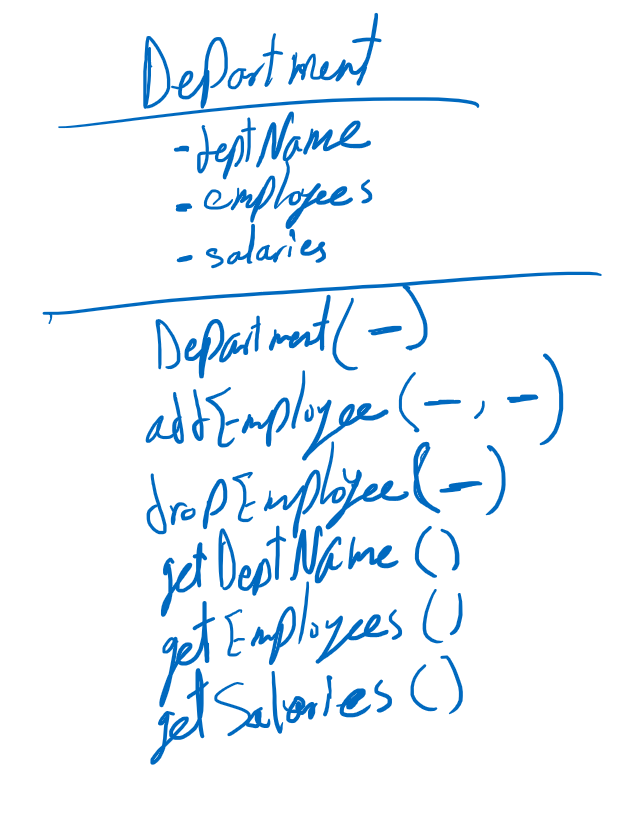 Department
- deptName
- employees
- salaries
Department(-)
addEmployee(-, -)
dropEmployee(-)
getDeptName()
getEmployees()
getSalaries()